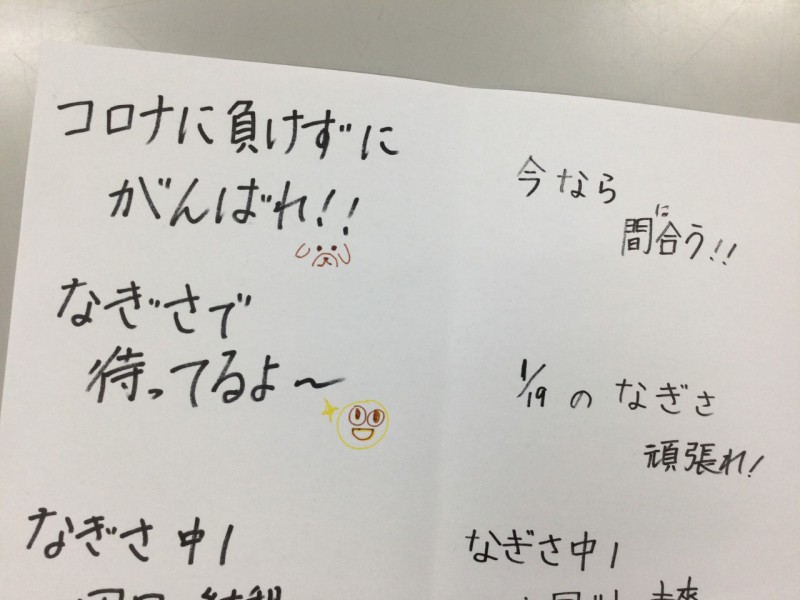 コロナに負けずに
がんばれ!!
なぎさで
待ってるよ〜
なぎさ中1
今なら
に
間合う!!
1/19のなぎさ
頑張れ!
なぎさ中1